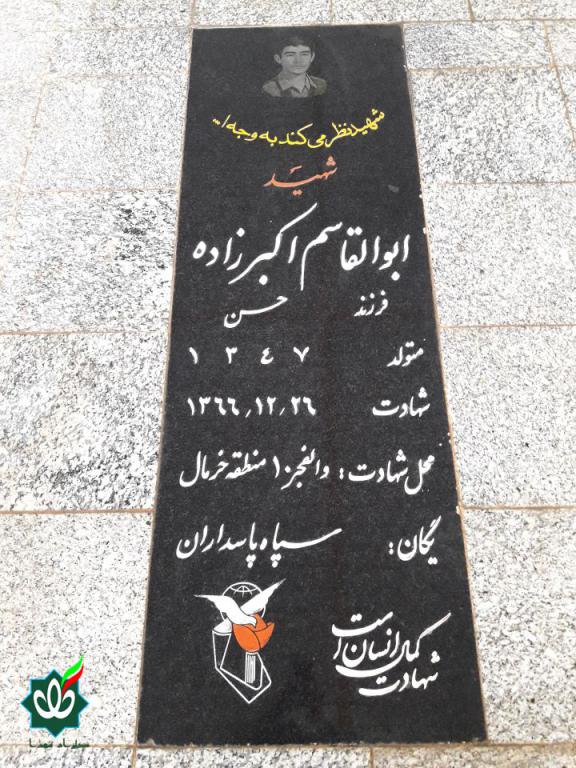 شهید نظر می کند به وجه ا...
شهید
ابوالقاسم اکبرزاده
فرزند حسن
متولد ۱۳۴۷
شهادت ۱۳۶۶٫۱۲٫۲۶
محل شهادت: والفجر۱۰ منطقه خرمال
یگان: سپاه پاسداران
شهادت کمال انسان است